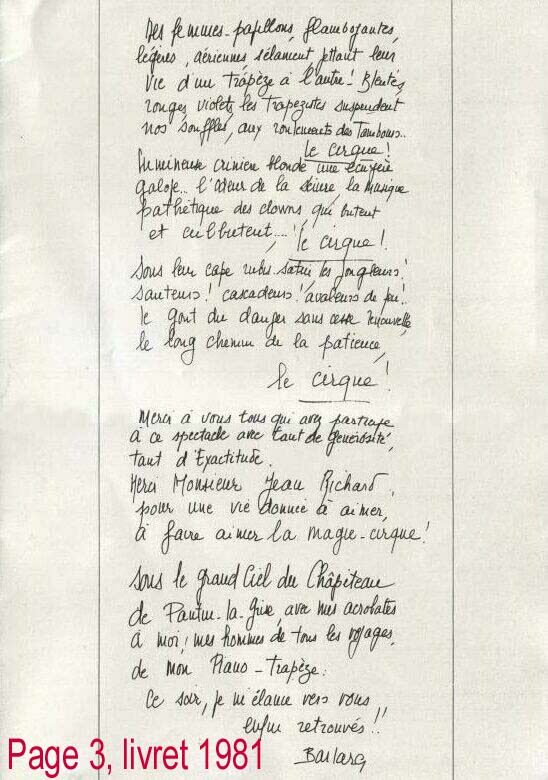 Des femmes-papillons, flamboyantes,
légères, aériennes s'élancent jettant leur
vie d'un trapèze à l'autre! Bleutés,
rouges, violets, les trapézistes suspendent
nos souffles, aux roulements des Tambours...
le cirque!
Lumineuse crinière blonde une écuyère
galope... l'odeur de la sciure, la musique
pathétique des clowns, qui butent
et culbutent....! le cirque!
Sous leur cape rubis-satin les jongleurs!
sauteurs! cascadeurs! avaleurs de feu!..
le goût du danger sans cesse renouvellé,
le long chemin de la patience,
le cirque!
Merci à vous tous qui avez participé
à ce spectacle avec tant de générosité,
tant d'Exactitude.
Merci Monsieur Jean Richard,
pour une vie donnée à aimer,
à faire aimer la magie-cirque!
Sous le grand Ciel du Châpiteau
de Pantin-la-grise, avec mes acrobates
à moi, mes hommes de tous les voyages,
de mon Piano-trapèze:
Ce soir, je m'élance vers vous
enfin retrouvés!!
Barbara
Page 3, livret 1981